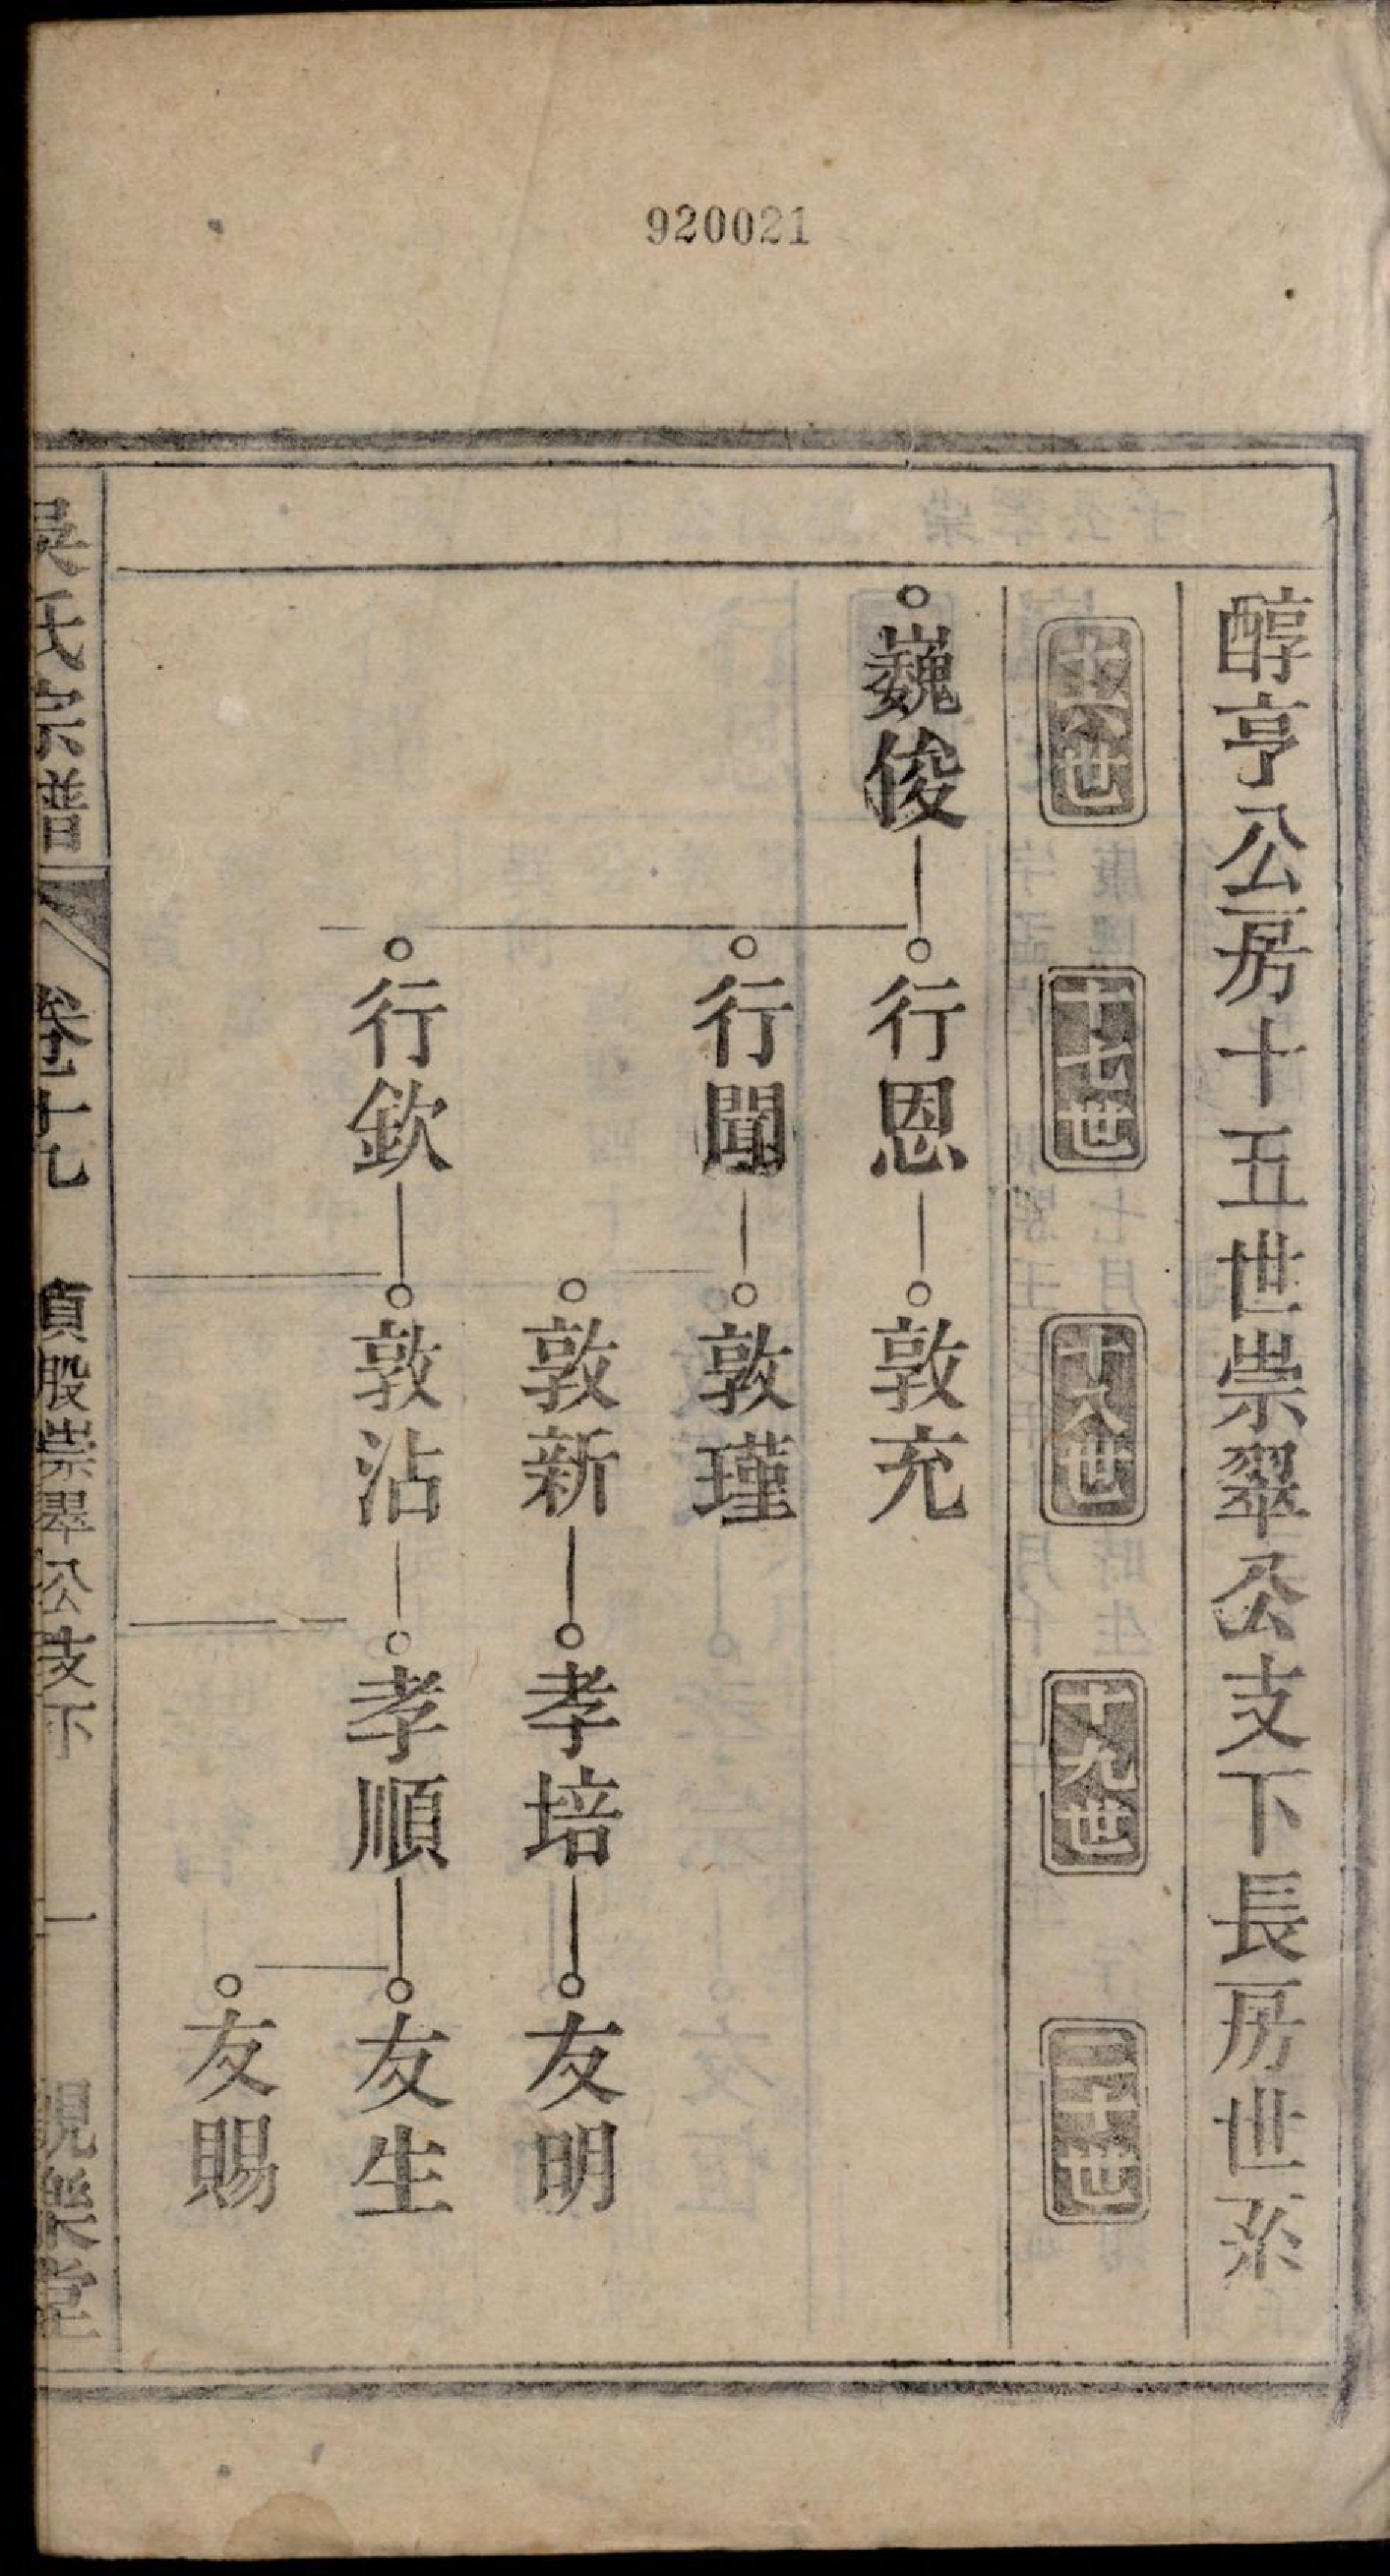 920021
醇亨公房十五世崇翠公支下長房世系
十六世
十七世
十八世
十九世
二十世
巍俊
行恩
敦充
行聞
敦瑾
敦新
孝培
友明
行欽
敦沾
孝順
友生
友賜
吳氏宗譜
卷十九
貞股崇翠公支下
一
親樂堂